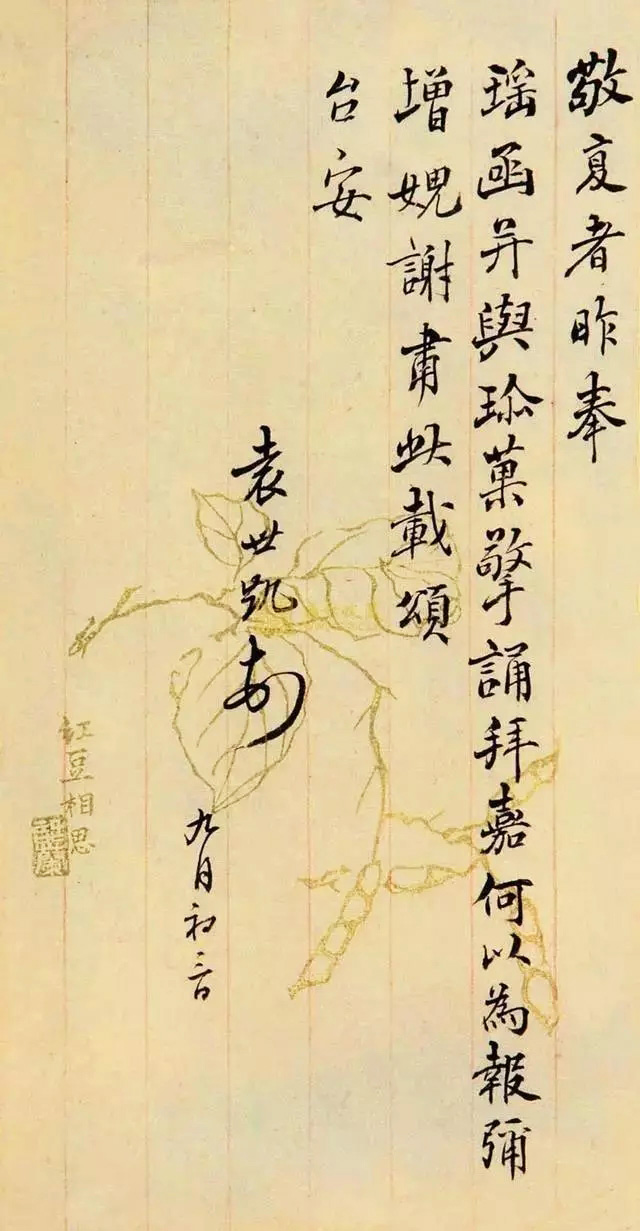 敬复者昨奉
瑶函并與珎菓擎誦拜嘉何以為報彌
增媿謝肅此載頌
台安
袁世凯
九月初三日
紅豆相思